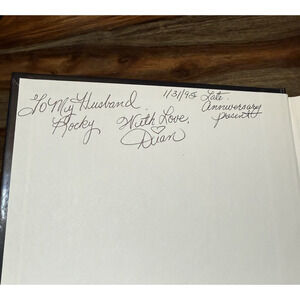 To My Husband
Rocky
With Love,
Dian
1/31/95 Late
Anniversary
present